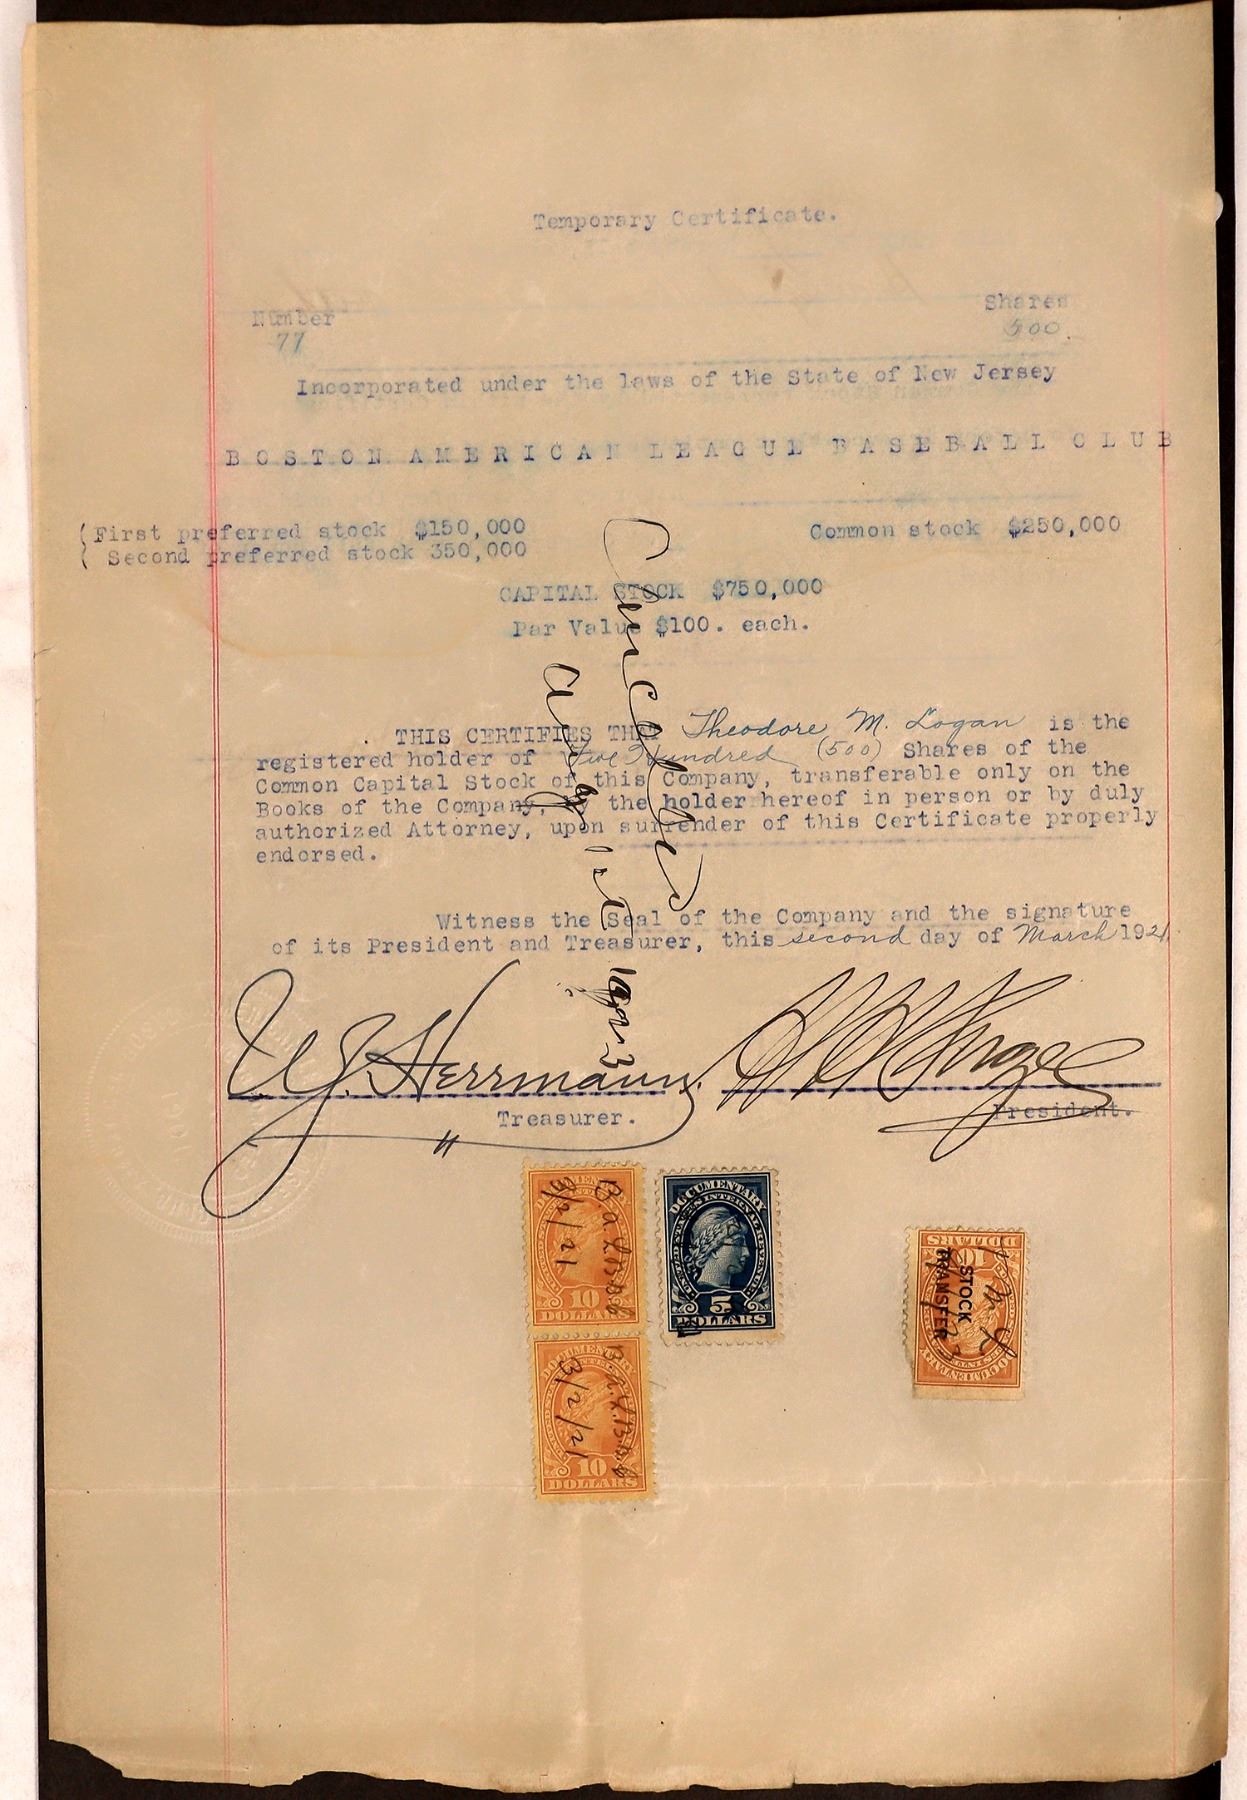 Temporary Certificate.
Number
77
Shares
500.
Incorporated under the laws of the State of New Jersey
BOSTON AMERICAN LEAGUE BASEBALL CLUB
(First preferred stock $150,000
( Second preferred stock 350,000
Common stock $250,000
CAPITAL STOCK $750,000
Par Value $100. each.
THIS CERTIFIES THAT Theodore M. Logan is the
registered holder of Five Hundred (500) Shares of the
Common Capital Stock of this Company, transferable only on the
Books of the Company, by the holder hereof in person or by duly
authorized Attorney, upon surrender of this Certificate properly
endorsed.
Cancelled
Aug 1st 1923
Witness the Seal of the Company and the signature
of its President and Treasurer, this second day of March 1921
U.J. Herrmann.
H H Frazee
Treasurer.
President.
DOCUMENTARY
UNITED STATES INTERNAL REVENUE
10
DOLLARS
B.a.L.B.B.C
3/2/21
DOCUMENTARY
UNITED STATES INTERNAL REVENUE
5
DOLLARS
DOCUMENTARY
10
DOLLARS
STOCK
TRANSFER
DOCUMENTARY
10
DOLLARS
B.a.L.B.B.C
3/2/21